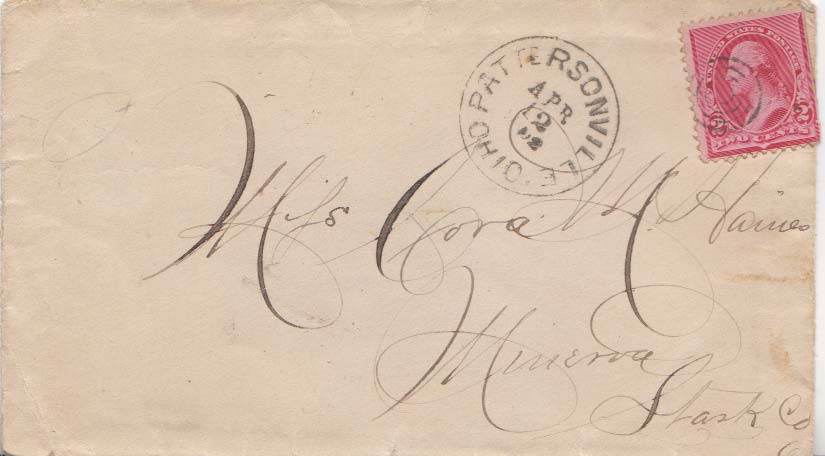 PATTERSONVILLE, OHIO
APR
12
92
UNITED STATES POSTAGE
2 2
TWO CENTS
Miss Cora M. Haines
Minerva
Stark Co